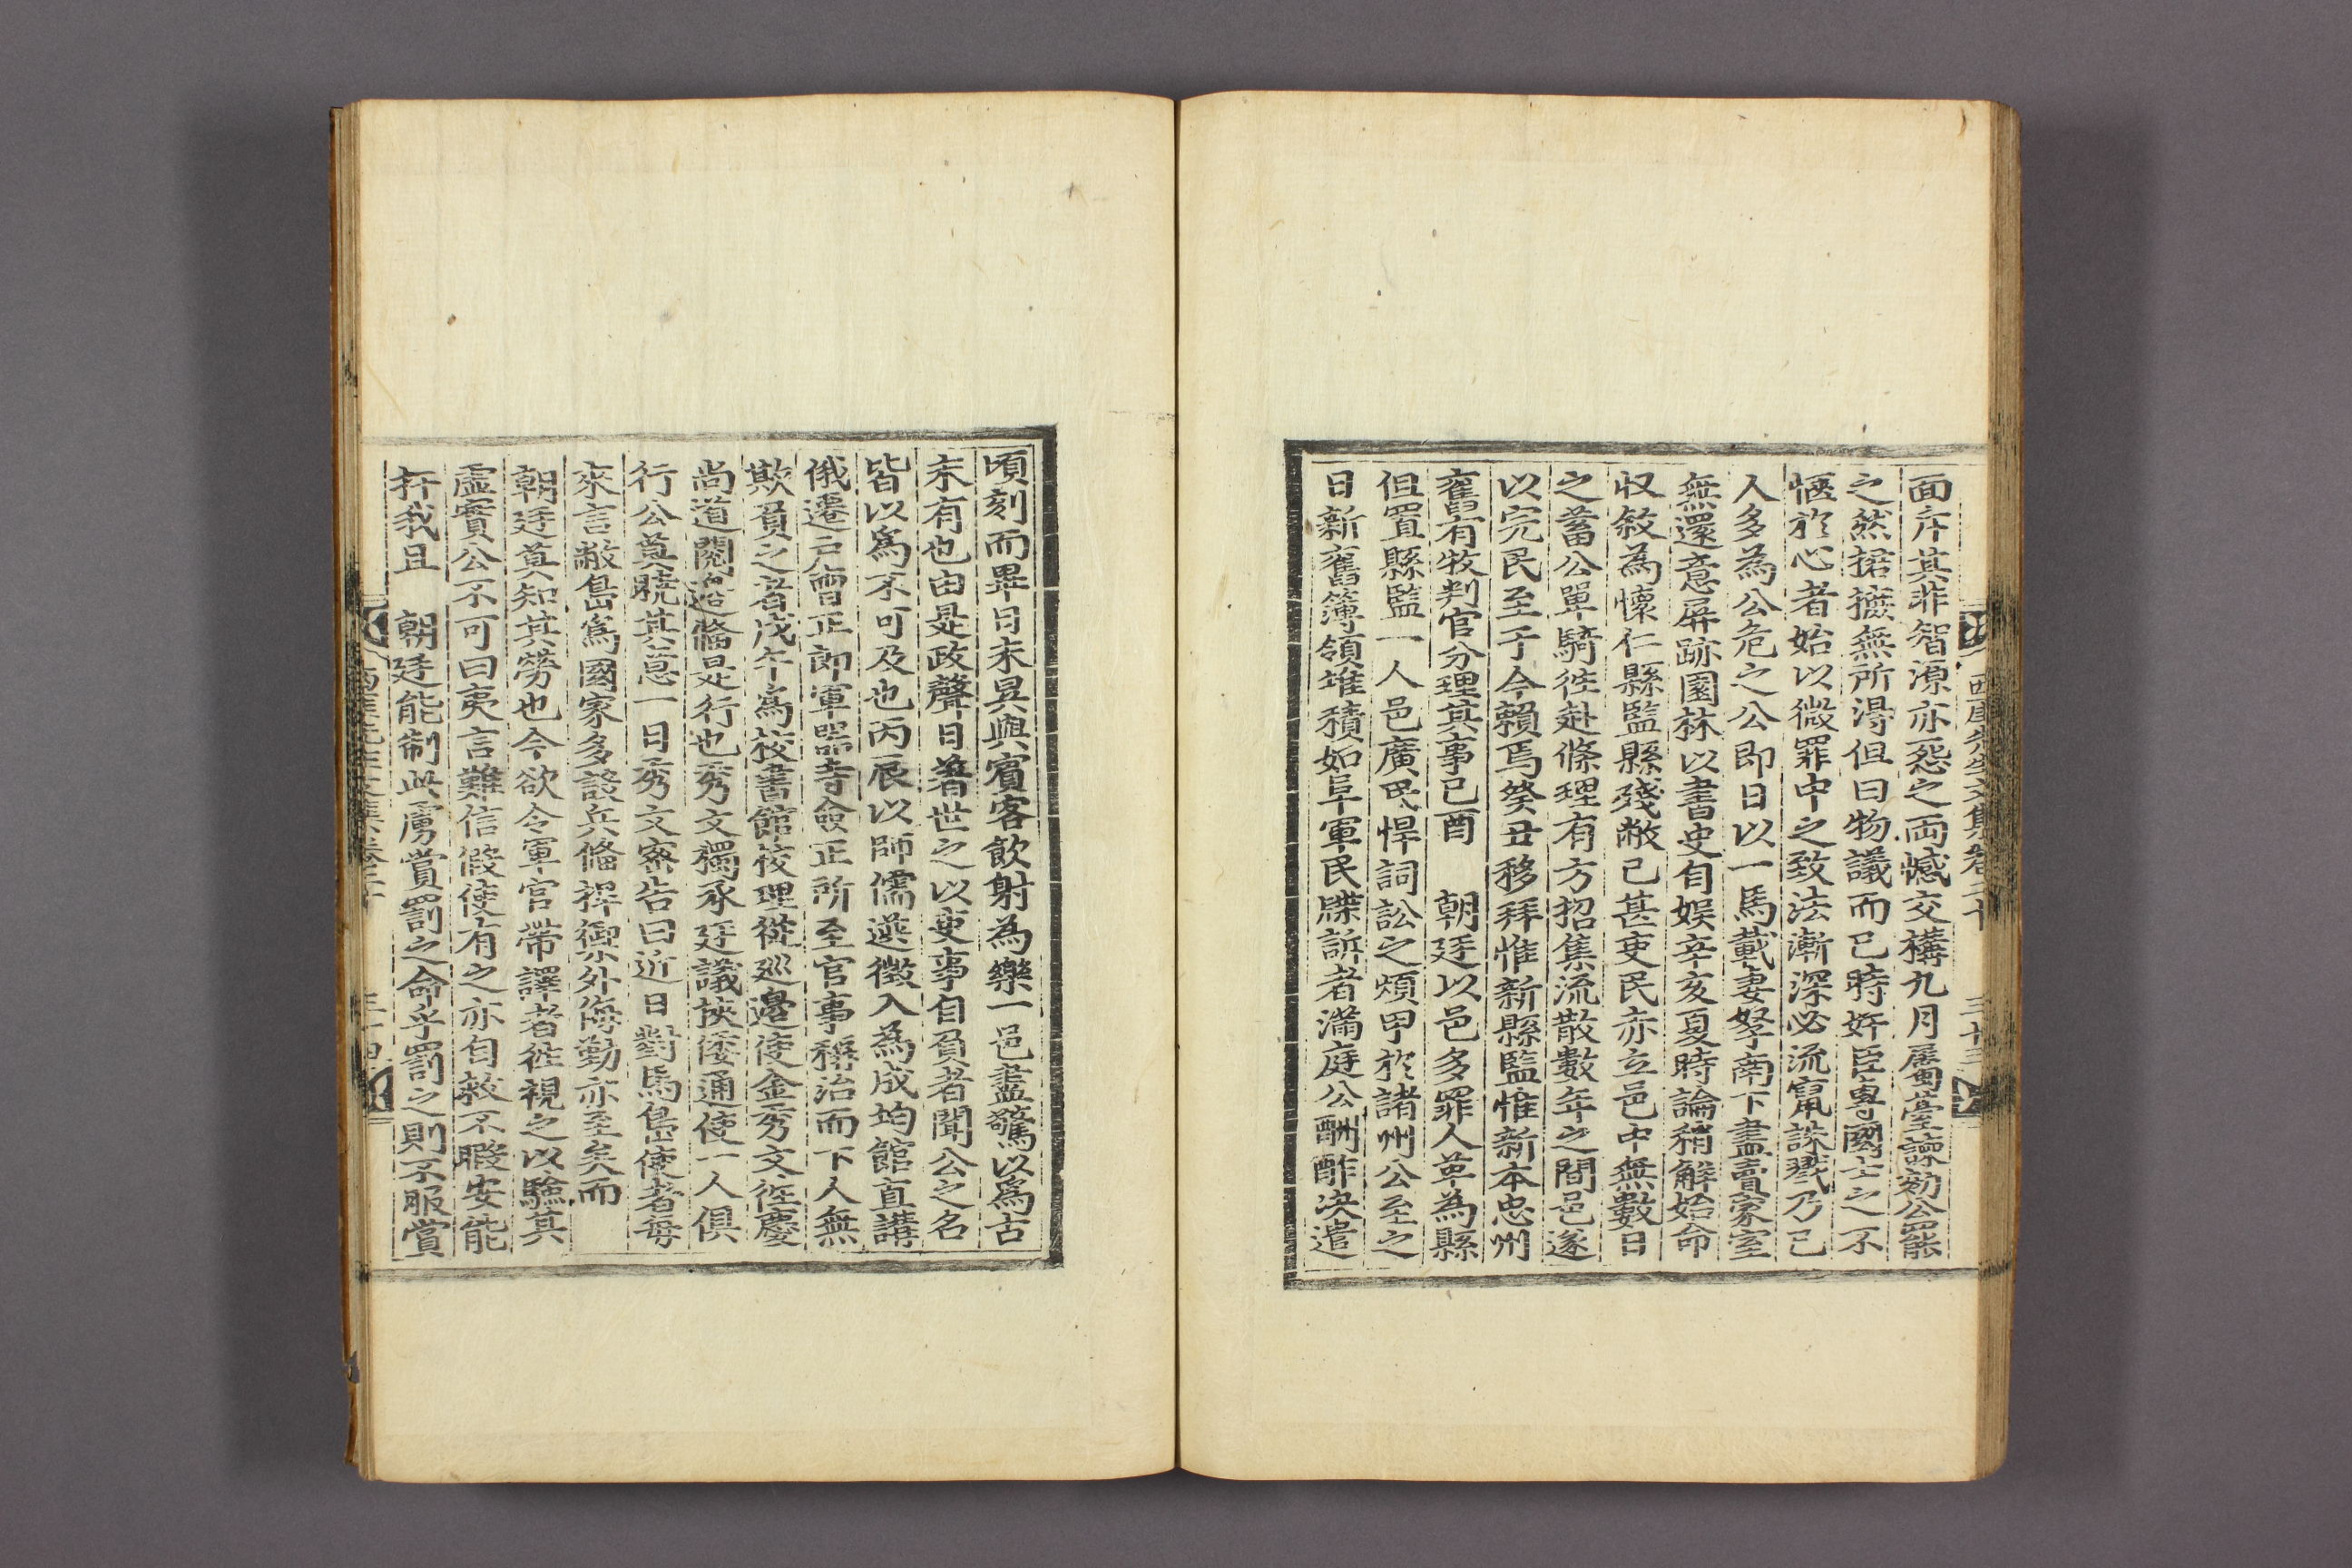 西厓先生文集卷二十
三十三
面斥其非智源亦怨之両憾交構九月屬臺諫劾公罷
之然捃摭無所得但曰物議而已時奸臣專國士之不
愜於心者始以微罪中之致法漸深必流竄誅戮乃已
人多為公危之公即日以一馬載妻孥南下盡賣家室
無還意屏跡園林以書史自娛辛亥夏時論稍解始命
収敘為懷仁縣監縣殘敝已甚吏民亦立邑中無數日
之蓄公單騎徃赴條理有方招集流散數年之間邑遂
以完民至于今賴焉癸丑移拜惟新縣監惟新本忠州
舊有牧判官分理其事己酉　朝廷以邑多罪人革為縣
但置縣監一人邑廣民悍詞訟之煩甲於諸州公至之
日新舊簿領堆積如阜軍民牒訴者滿庭公酬酢决遣
頃刻而畢日未昃與賓客飮射為樂一邑盡驚以爲古
未有也由是政聲日著世之以吏事自負者聞公之名
皆以爲不可及也丙辰以師儒選徴入為成均館直講
俄遷戸曹正郎軍器寺僉正所至官事稱治而下人無
欺負之者戊午爲校書館校理從廵邉使金秀文徃慶
尚道閱邉備是行也秀文獨承廷議挾倭通使一人俱
行公莫曉其意一日秀文宻告曰近日對馬島使者每
來言敝島爲國家多設兵備捍禦外侮勤亦至矣而
朝廷莫知其勞也今欲令軍官帶譯者徃視之以驗其
虛實公不可曰夷言難信假使有之亦自救不暇安能
扞我且　朝廷能制此虜賞罰之命乎罰之則不服賞
西厓先生文集卷二十
三十四